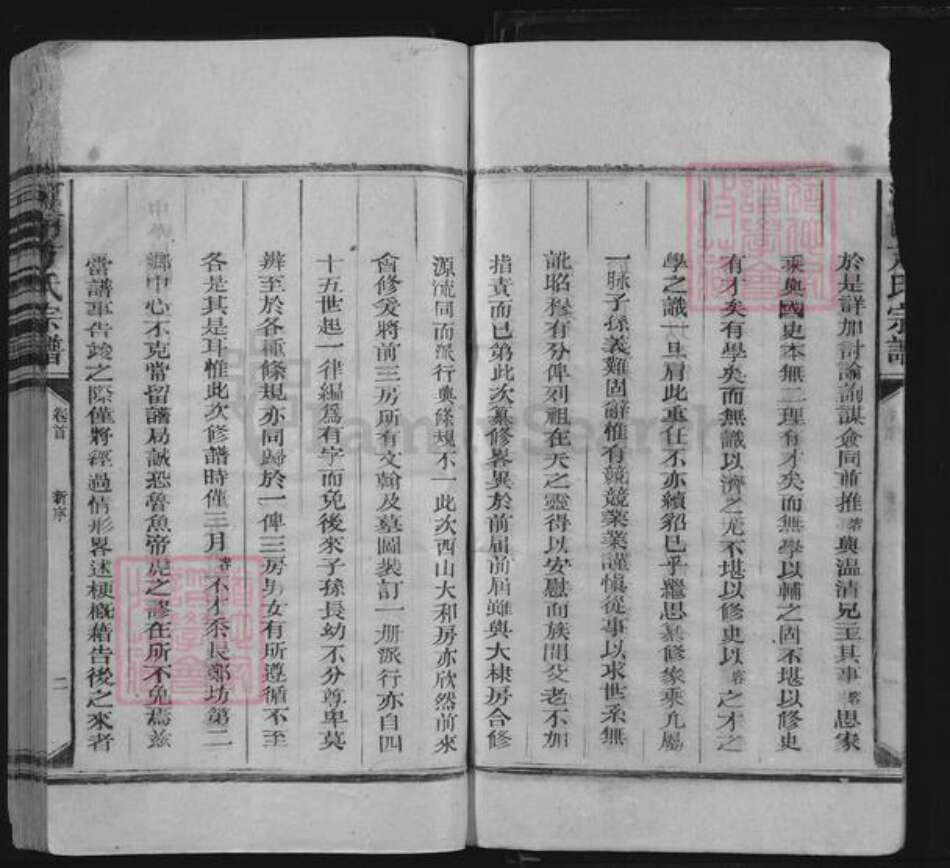 於是詳加討論詢謀僉同前推容與温清兄主其事容思家
乘與國史本無二理有才矣而無學以輔之固不堪以修史
有才矣有學矣而無識以濟之尤不堪以修史以容之才之
學之識一旦肩此重任不亦續貂已乎繼思纂修家乘凡屬
一脉子孫義難固辭惟有兢兢業業謹愼從事以求世系無
訛昭穆有分俾列祖在天之靈得以安慰而族間父老不加
指責而已第此次纂修畧異於前届前届雖與大棣房合修
源流同而派行與條規不一此次西山大和房亦欣然前來
會修爰將前三房所有文翰及墓圖裝訂一册派行亦自四
十五世起一律編爲有字而免後來子孫長幼不分尊卑莫
辨至於各種條規亦同歸於一俾三房男女有所遵循不至
各是其是耳惟此次修譜時僅三月容不才忝長鄭坊第二
中學
鄉中心不克常留譜局誠恐魯魚帝虎之謬在所不免焉茲
當譜事告竣之際僅將經過情形畧述梗槪藉告後之來者
氏宗譜
卷首
新序
二
FamilySearch